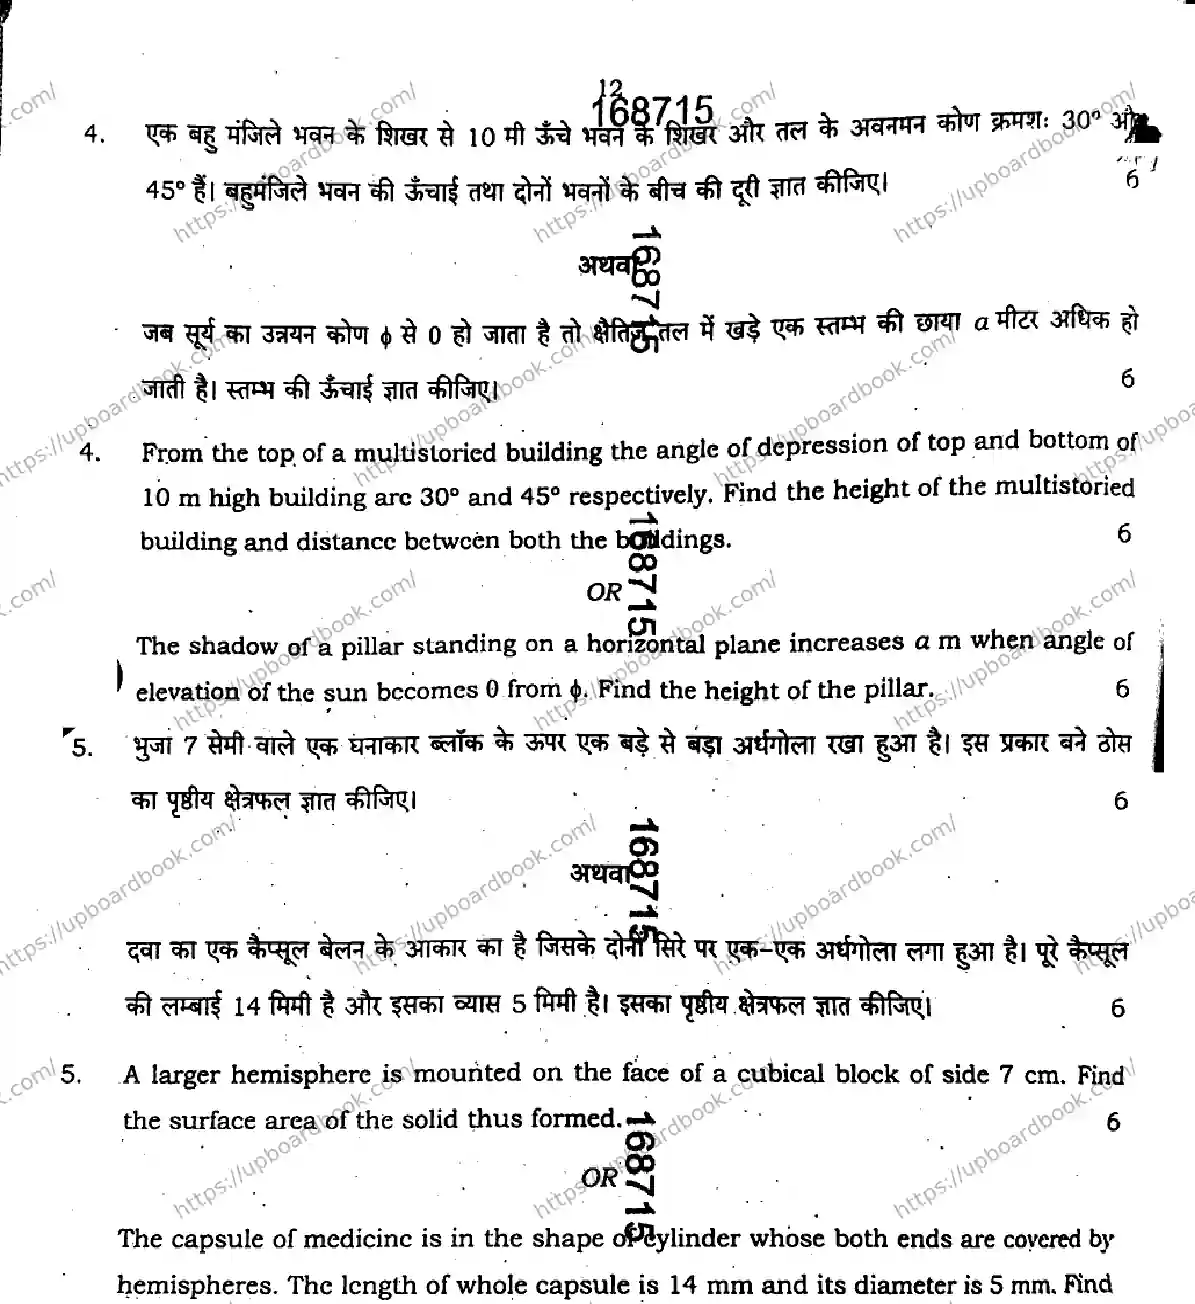 12
168715
4. एक बहु मंजिले भवन के शिखर से 10 मी ऊँचे भवन के शिखर और तल के अवनमन कोण क्रमशः 30° और
45° हैं। बहुमंजिले भवन की ऊँचाई तथा दोनों भवनों के बीच की दूरी ज्ञात कीजिए। 6
अथवा
168715
जब सूर्य का उन्नयन कोण ϕ से θ हो जाता है तो क्षैतिज तल में खड़े एक स्तम्भ की छाया a मीटर अधिक हो
जाती है। स्तम्भ की ऊँचाई ज्ञात कीजिए। 6
4. From the top of a multistoried building the angle of depression of top and bottom of
10 m high building are 30° and 45° respectively. Find the height of the multistoried
building and distance between both the buildings. 6
168715
OR
The shadow of a pillar standing on a horizontal plane increases a m when angle of
elevation of the sun becomes θ from ϕ. Find the height of the pillar. 6
5. भुजा 7 सेमी वाले एक घनाकार ब्लॉक के ऊपर एक बड़े से बड़ा अर्धगोला रखा हुआ है। इस प्रकार बने ठोस
का पृष्ठीय क्षेत्रफल ज्ञात कीजिए। 6
168715
अथवा
दवा का एक कैप्सूल बेलन के आकार का है जिसके दोनों सिरे पर एक-एक अर्धगोला लगा हुआ है। पूरे कैप्सूल
की लम्बाई 14 मिमी है और इसका व्यास 5 मिमी है। इसका पृष्ठीय क्षेत्रफल ज्ञात कीजिए। 6
5. A larger hemisphere is mounted on the face of a cubical block of side 7 cm. Find
the surface area of the solid thus formed. 6
168715
OR
The capsule of medicine is in the shape of cylinder whose both ends are covered by
hemispheres. The length of whole capsule is 14 mm and its diameter is 5 mm. Find
https://upboardbook.com/